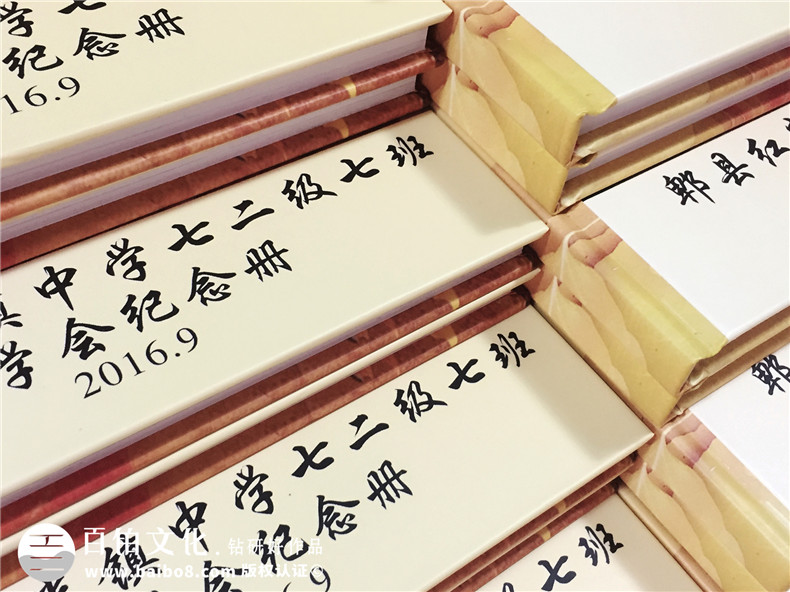 学七
纪念册
2016.9
中学七二级七班
学会纪念册
2016.9
郫县红
镇中学七二级七班
会纪念册
.9
郫
级七班
百铂文化
钻研好作品
www.baibo8.com 版权认证©